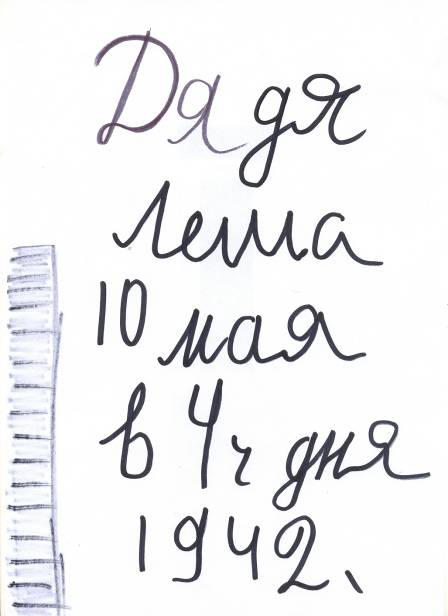 Дядя
Леша
10 мая
в 4ч дня
1942.